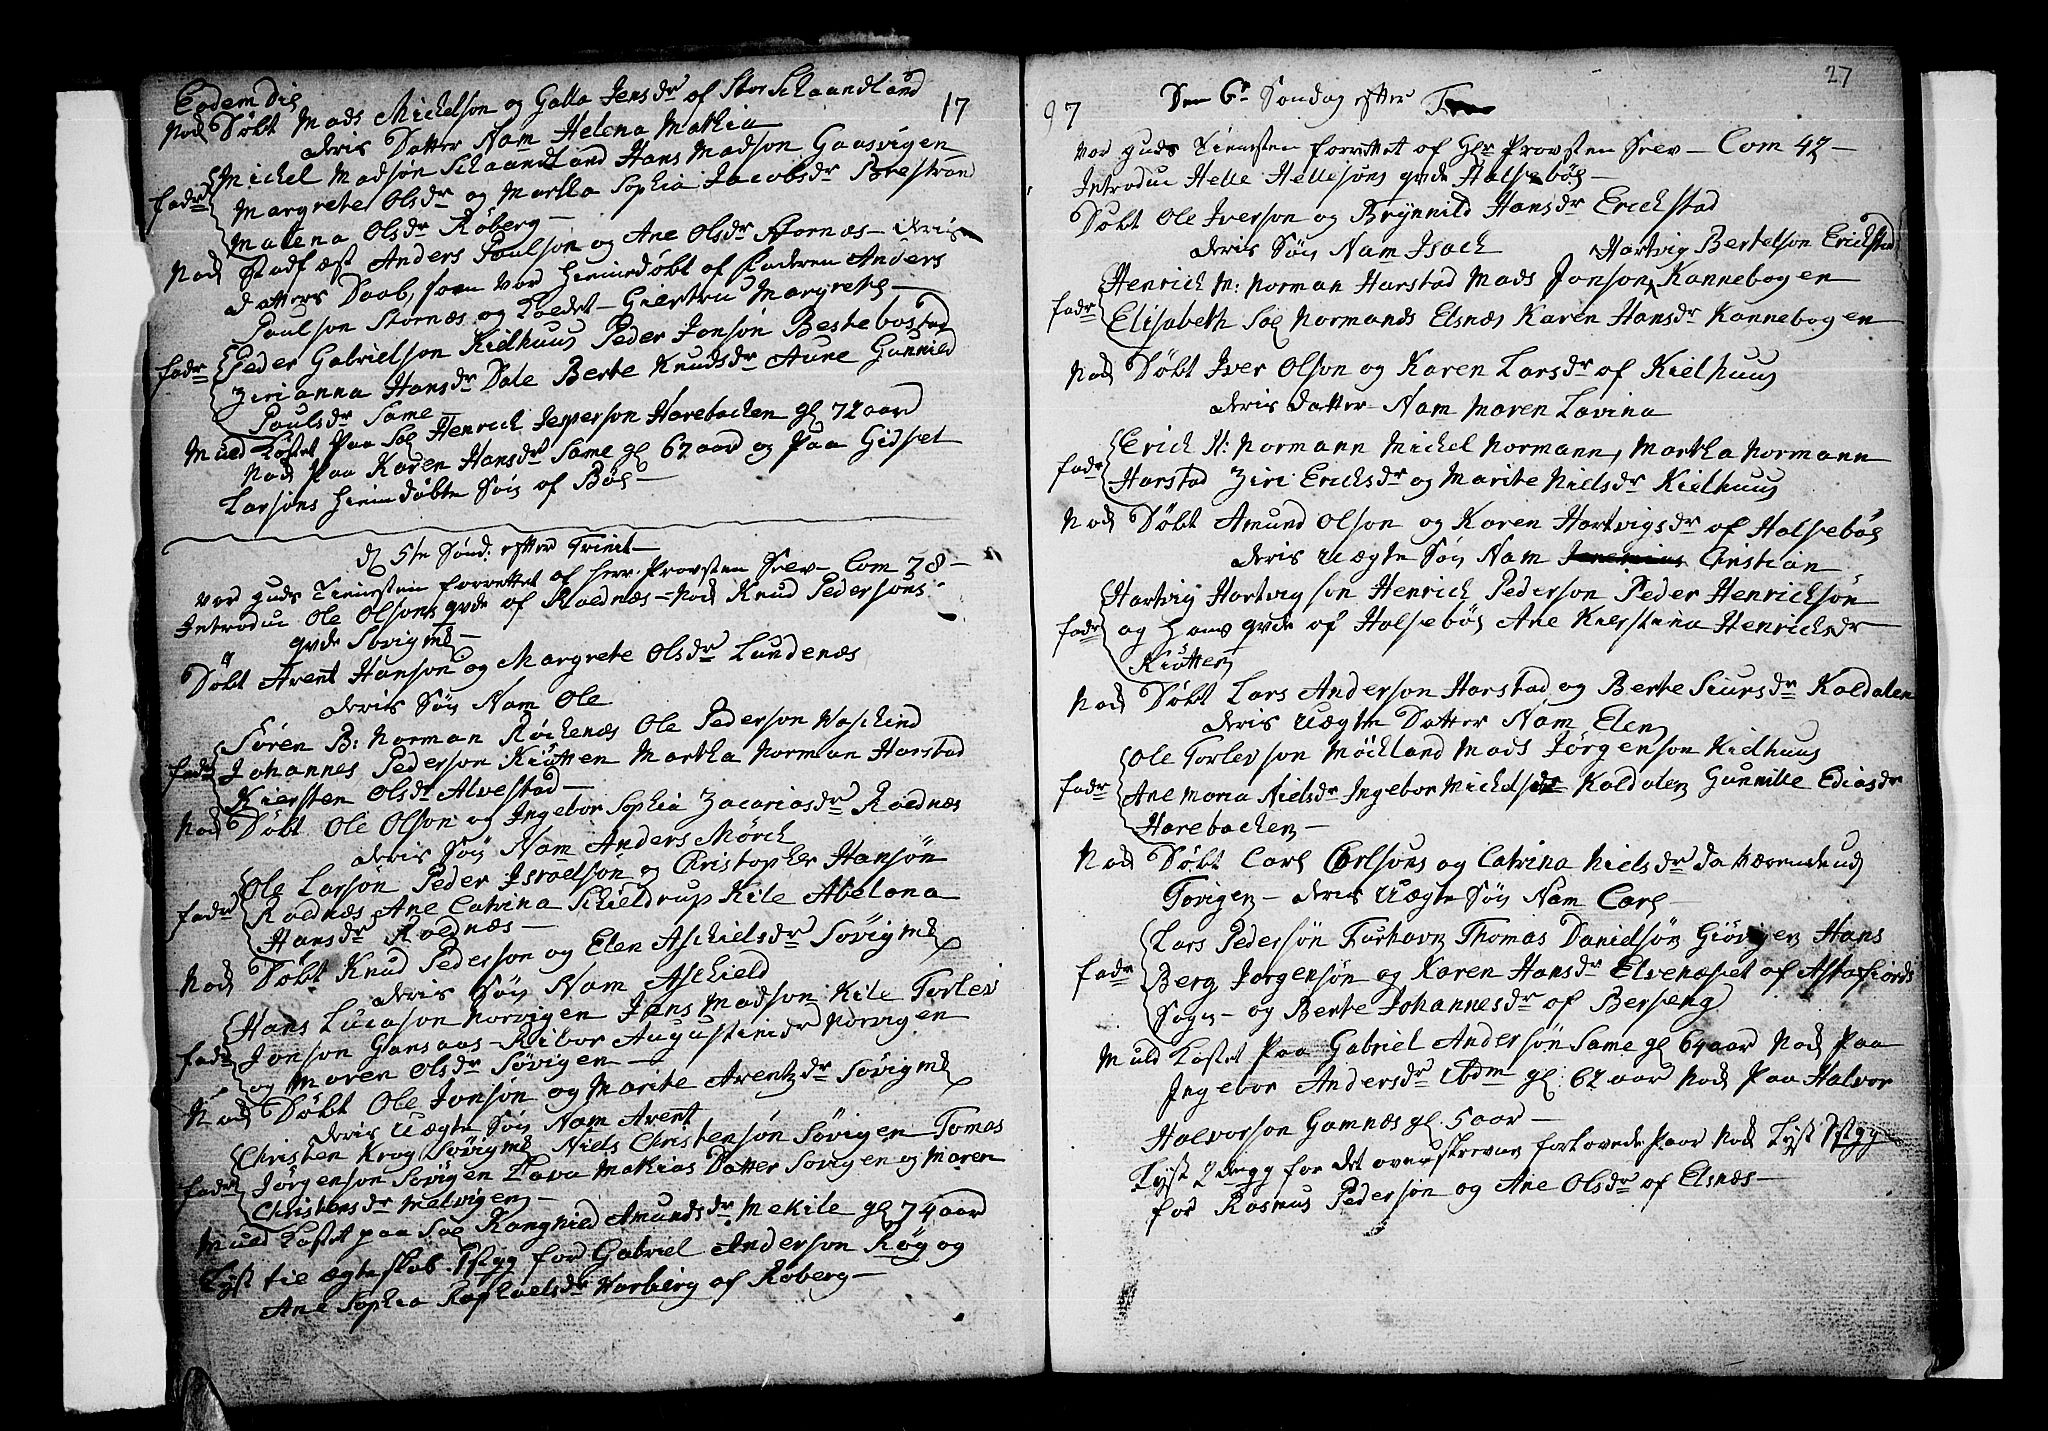 Eodem Die
Nod Døbt Mads Mickelson og Galla Jensdr of Stor Schaandland 17
deris Datter Nam Helena Mathia
Michel Madsøn Schaandland Hans Madson Gaasvigen
fadr Margrete Olsdr og Martha Sophia Jacobsdr Brestrand
Malena Olsdr Røberg —
Nod Stadfæst Anders Paulson og Ane Olsdr Stornæs — deris
datters Daab, som var hiemedøbt af Faderen Anders
Paulson Stornæs og Kaldet — Giertru Margreth —
Peder Gabrielson Kielhuus Peder Jonson Bestebostad
fadr Zirianna Hansdr Dale Berte Knudsdr Aune Gunnild
Paulsdr Same —
Muld Kastet Paa Sal Henrich Jesperson Harebacken gl 72 aar
Nod Paa Karen Hansdr Same gl 67 aar og Paa Gidset
Larsøns hiemdøbte Søn of Bøe —
D 5te Sønd: efter Trinit —
var guds Tienesten forrettet af Herr Provsten Srev — Com 78 —
Introdu Ole Olsons qvde of Roednæs — Nod Knud Pedersons
qvde Søvigme —
Døbt Arent Hanson og Margrete Olsdr Lundenæs
deris Søn Nam Ole
Søren B: Norman Røckenæs Ole Pederson Waschind
fadr Johannes Pederson Kiøtten Martha Norman Harstad
Kiersten Olsdr Alvestad —
Nod Døbt Ole Olson og Ingebor Sophia Zacariasdr Roednæs
deris Søn Nam Anders Mørch
Ole Larsøn Peder Israelson og Christopher Hansøn
fadr Roednæs Ane Catrina Schieldrup Kile Abelona
Hansdr Roednæs —
Nod Døbt Knud Pederson og Elen Aschielsdr Søvigme
deris Søn Nam Aschield
Hans Lucason Norvigen Jens Madson Kile Torlev
fadr Jonson Gansaas — Ribor Augustinidr Norvigen
og Maren Olsdr Søvigen —
Nod Døbt Ole Jonsøn og Marite Arentzdr Søvigme
deris Uægte Søn Nam Arent
Christen Krog Søvigme Niels Christensøn Søvigen Tomas
fadr Jørgenson Søvigen Lava Mathias Datter Søvigen og Maren
Christensdr Melvigen —
Muld Kastet paa Sal Rangnild Amundsdr Mekile gl 74 aar
Lyst til ægteskab 1ste gg for Gabriel Anderson Røg og
Ane Sophia Raphaelsdr Harberg af Røberg —
27
97 Den 6te Søndag efter
var guds Tienesten forrettet af Hr Provsten Srev — Com 42 —
Introdu Helle Hellesøns qvde Halsebøe —
Døbt Ole Iverson og Brynnild Hansdr Erickstad
deris Søn Nam Isach Hartvig Bertelson Erickstad
Henrich M: Norman Harstad Mads Jonson Kannebogen
fadr Elisabeth Sal Normands Elsnæs Karen Hansdr Kannebogen
Nod Døbt Iver Olson og Karen Larsdr af Kielhuus
deris datter Nam Maren Lavina
Erich N: Normann Michel Normann, Martha Normann
fadr Harstad Ziri Ericksdr og Marite Nielsdr Kielhuus
Nod Døbt Amund Olson og Karen Hartvigsdr af Halsebøe
deris uægte Søn Nam Christian
Hartvig Hartvigson Henrich Pederson Peder Henricksøn
fadr og Hans qvde af Halsebøe Ane Kierstina Henricksdr
Kiøtten
Nod Døbt Lars Anderson Harstad og Berte Siursdr Kaldalen
deris Uægte Datter Nam Elen
Ole Torlevson Møckland Mads Jørgenson Kielhuus
fadr Ane Maria Nielsdr Ingebor Michelsdr Kaldalen Gunnille Ediasdr
Harebacken —
Nod Døbt Carl Carlsons og Catrina Nielsdr da værende ud
Tøvigen — deris Uægte Søn Nam Carl —
Lars Pedersøn Furhavn Thomas Danielsøn Giøvigen Hans
fadr Berg Jorgensøn og Karen Hansdr Elvenæset af Astafiords
Sogn — og Berte Johannesdr of Berseng
Muld Kastet Paa Gabriel Andersøn Same gl 64 aar Nod Paa
Ingebor Andersdr Ibdm gl: 67 aar Nod Paa Halvor
Halvorson Gamnæs gl. 5 aar —
Lyst 2den gg for det ovenskrevne forlovede Paar Nod Lyst 1ste gg
for Rasmus Pedersøn og Ane Olsdr af Elsnæs —